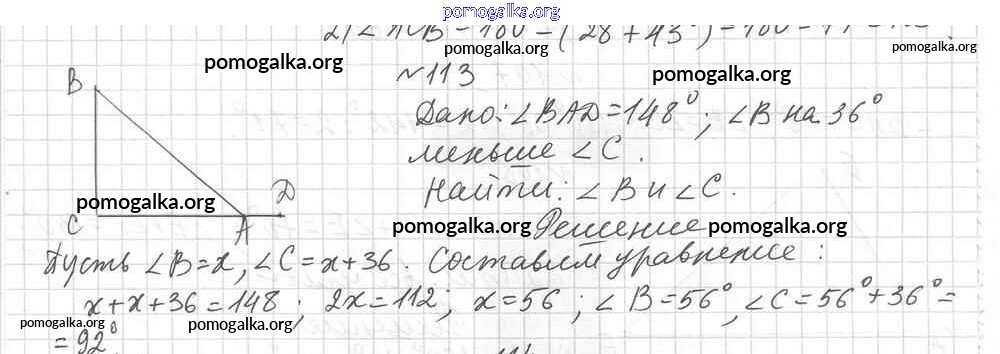 pomogalka.org
2) ∠ACB = 180 - (28 + 43°) = 180 -
pomogalka.org
pomogalka.org
pomogalka.org
№113
B
Дано: ∠BAD = 148°; ∠B на 36°
меньше ∠C.
Найти: ∠B и ∠C.
pomogalka.org
D
C
A
pomogalka.org
Решение
pomogalka.org
Пусть ∠B = x, ∠C = x + 36. Составим уравнение:
x + x + 36 = 148; 2x = 112; x = 56; ∠B = 56°, ∠C = 56° + 36° =
pomogalka.org
pomogalka.org
pomogalka.org
= 92°.